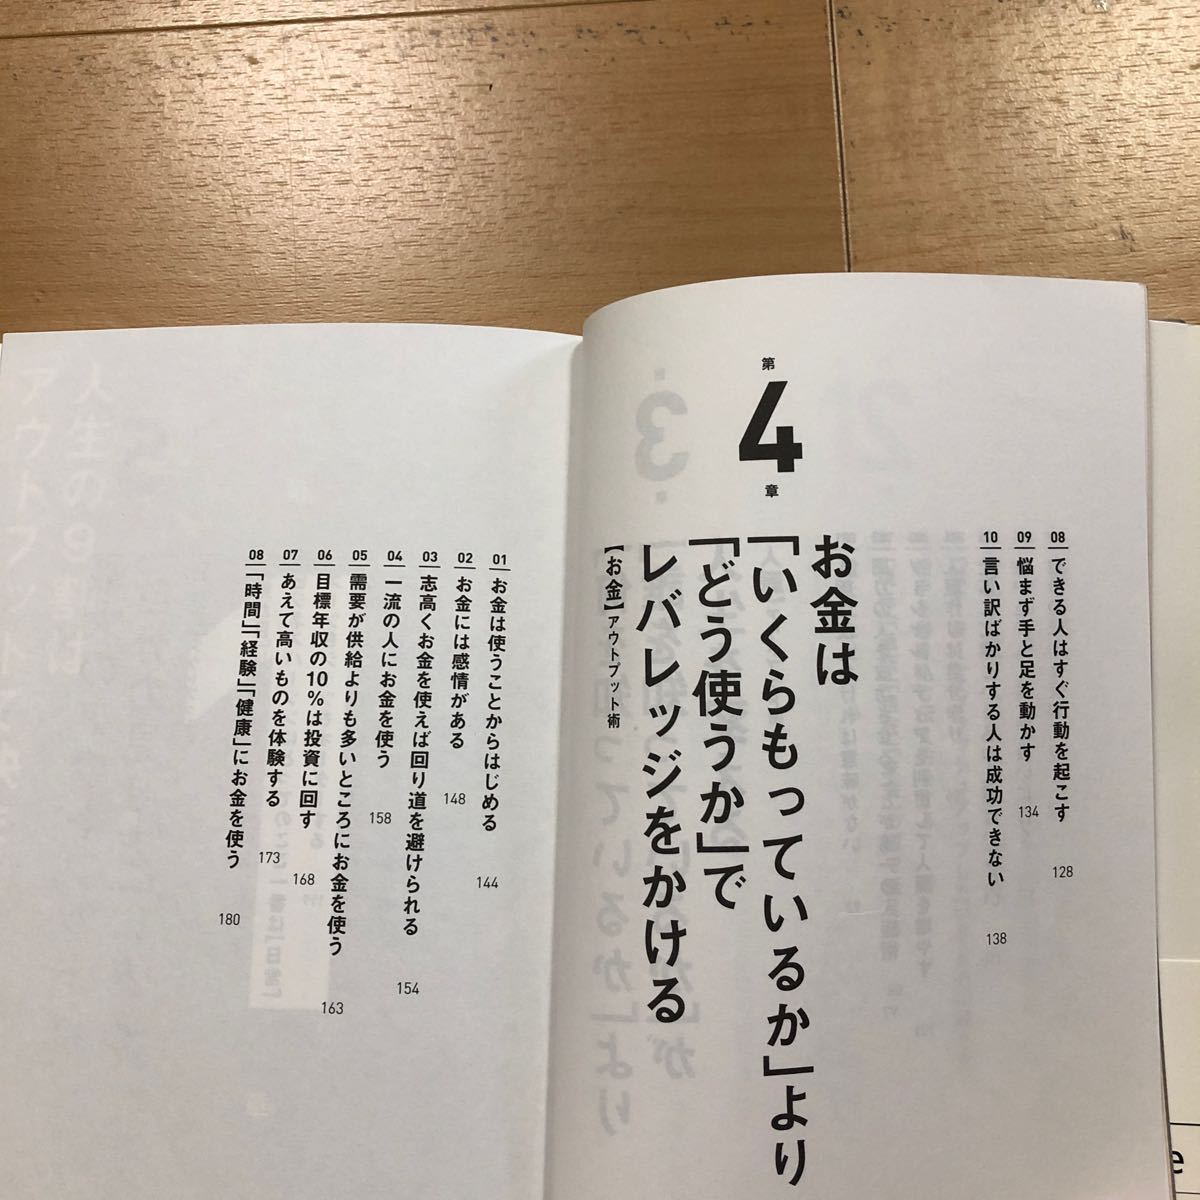 08 できる人はすぐ行動を起こす 128
09 悩まず手と足を動かす 134
10 言い訳ばかりする人は成功できない 138
第
4
章
お金は
「いくらもっているか」より
「どう使うか」で
レバレッジをかける
【お金】アウトプット術
01 お金は使うことからはじめる 144
02 お金には感情がある 148
03 志高くお金を使えば回り道を避けられる 154
04 一流の人にお金を使う 158
05 需要が供給よりも多いところにお金を使う 163
06 目標年収の10%は投資に回す 168
07 あえて高いものを体験する 173
08 「時間」「経験」「健康」にお金を使う 180
e